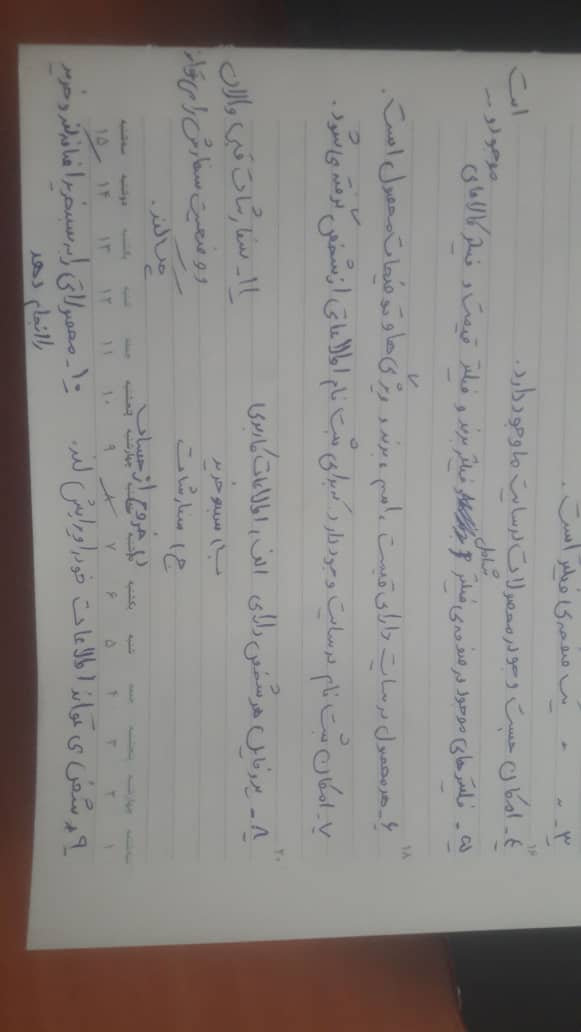 ۳- " " یک صفحه‌ی فیلتر است.
۱۶
۴- امکان جست و جو در محصولات در سایت ما وجود دارد.
۵- فیلترهای موجود در صفحه‌ی فیلتر شامل فیلتر برند و فیلتر قیمت و فیلتر کالاهای موجود و ... است
۱۸
۶- هر محصول در سایت دارای قیمت ، اسم ، برند و ویژگی ها و توضیحات محصول است.
۷- امکان ثبت نام در سایت وجود دارد که برای ثبت نام اطلاعاتی از شخص گرفته می شود.
۲۰
۸- پروفایل هر شخص دارای الف) اطلاعات کاربری
ب) سبد خرید
ج) سفارشات
د) خروج از حساب
۱۱- سفارشات قبلی و الان
و وضعیت سفارش را می تواند
چک کند.
سه‌شنبه چهارشنبه پنجشنبه جمعه شنبه یکشنبه دوشنبه سه‌شنبه چهارشنبه پنجشنبه جمعه شنبه یکشنبه دوشنبه سه‌شنبه
۱ ۲ ۳ ۴ ۵ ۶ ۷ ۸ ۹ ۱۰ ۱۱ ۱۲ ۱۳ ۱۴ ۱۵
۹- شخص می تواند اطلاعات خود را ویرایش کند.
۱۰- محصولاتی را به سبد خرید اضافه کند و خرید
را انجام دهد